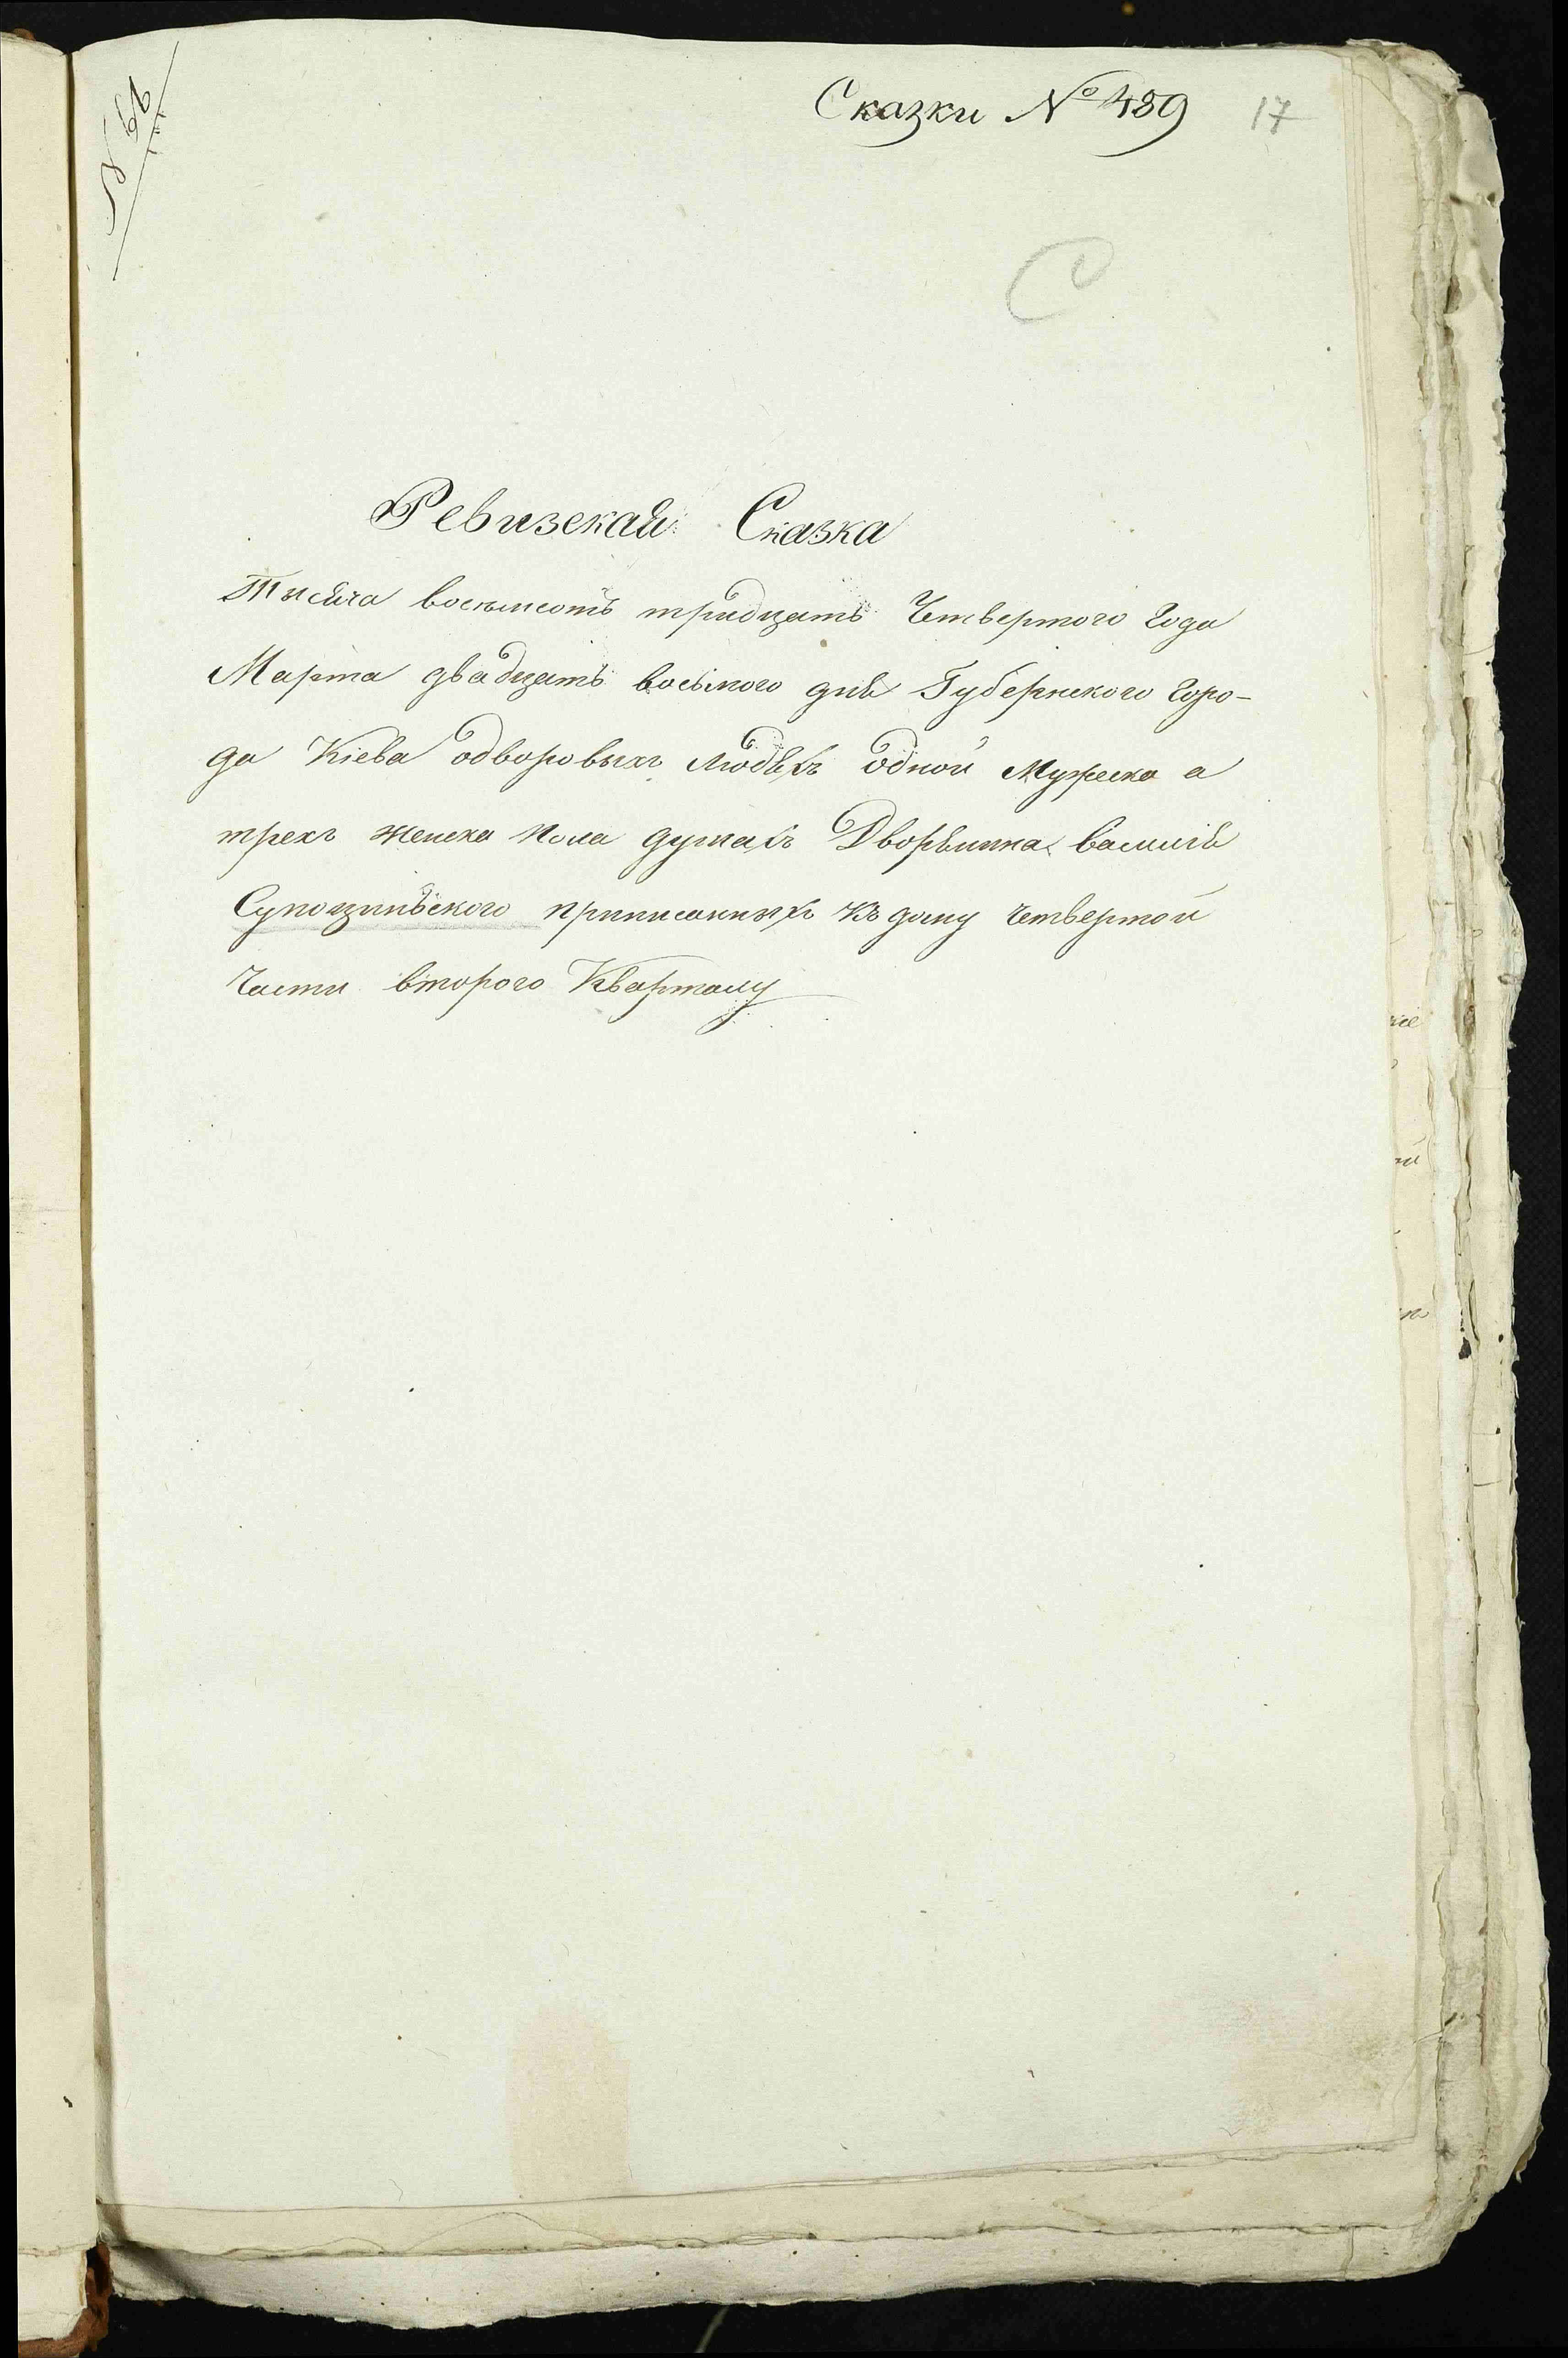 № 61
Сказки № 489 17
С
Ревизская Сказка
Тысяча восемсотъ тридцать Четвертого Года
Марта двадцать восьмого дня Губернского Горо-
да Кіева одворовыхъ людяхъ одной Мужеска а
трехъ женска пола душахъ Дворянина василія
Супозинского приписанныхъ къ дому Четвертой
Части второго Кварталу